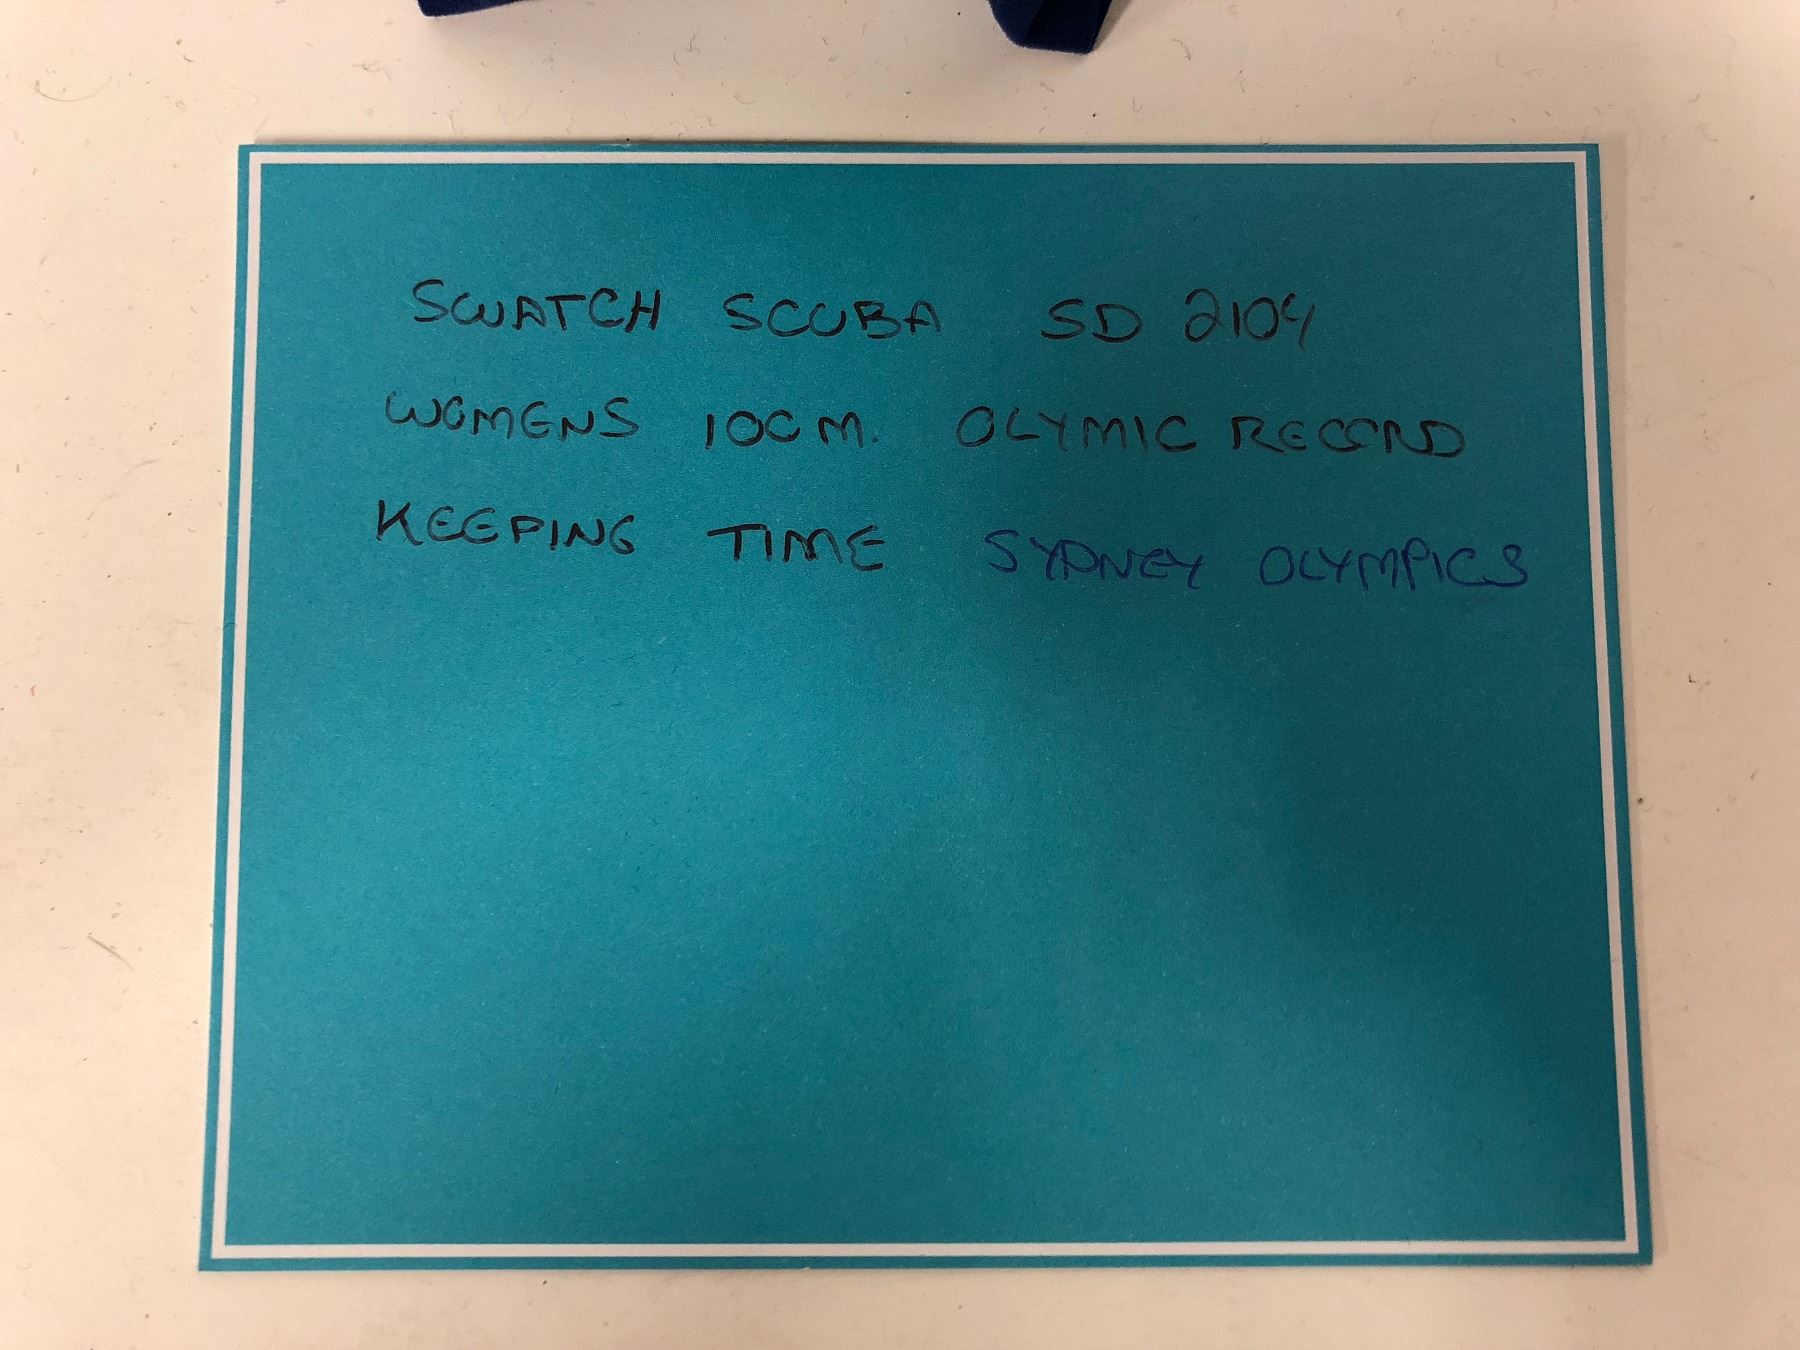 SWATCH SCUBA SD 2104
WOMENS 100M. OLYMIC RECORD
KEEPING TIME SYDNEY OLYMPICS